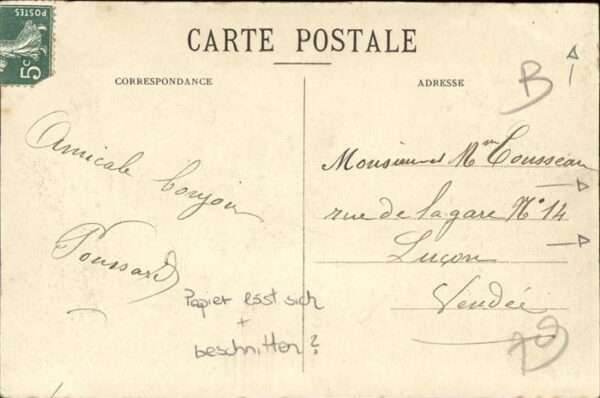 POSTES
5c
CARTE POSTALE
CORRESPONDANCE
ADRESSE
B
Amicale bonjour
Poussard
Monsieur et Mme Cousseau
rue de la gare N° 14
Luçon
Vendée
Papier löst sich
+
beschnitten?